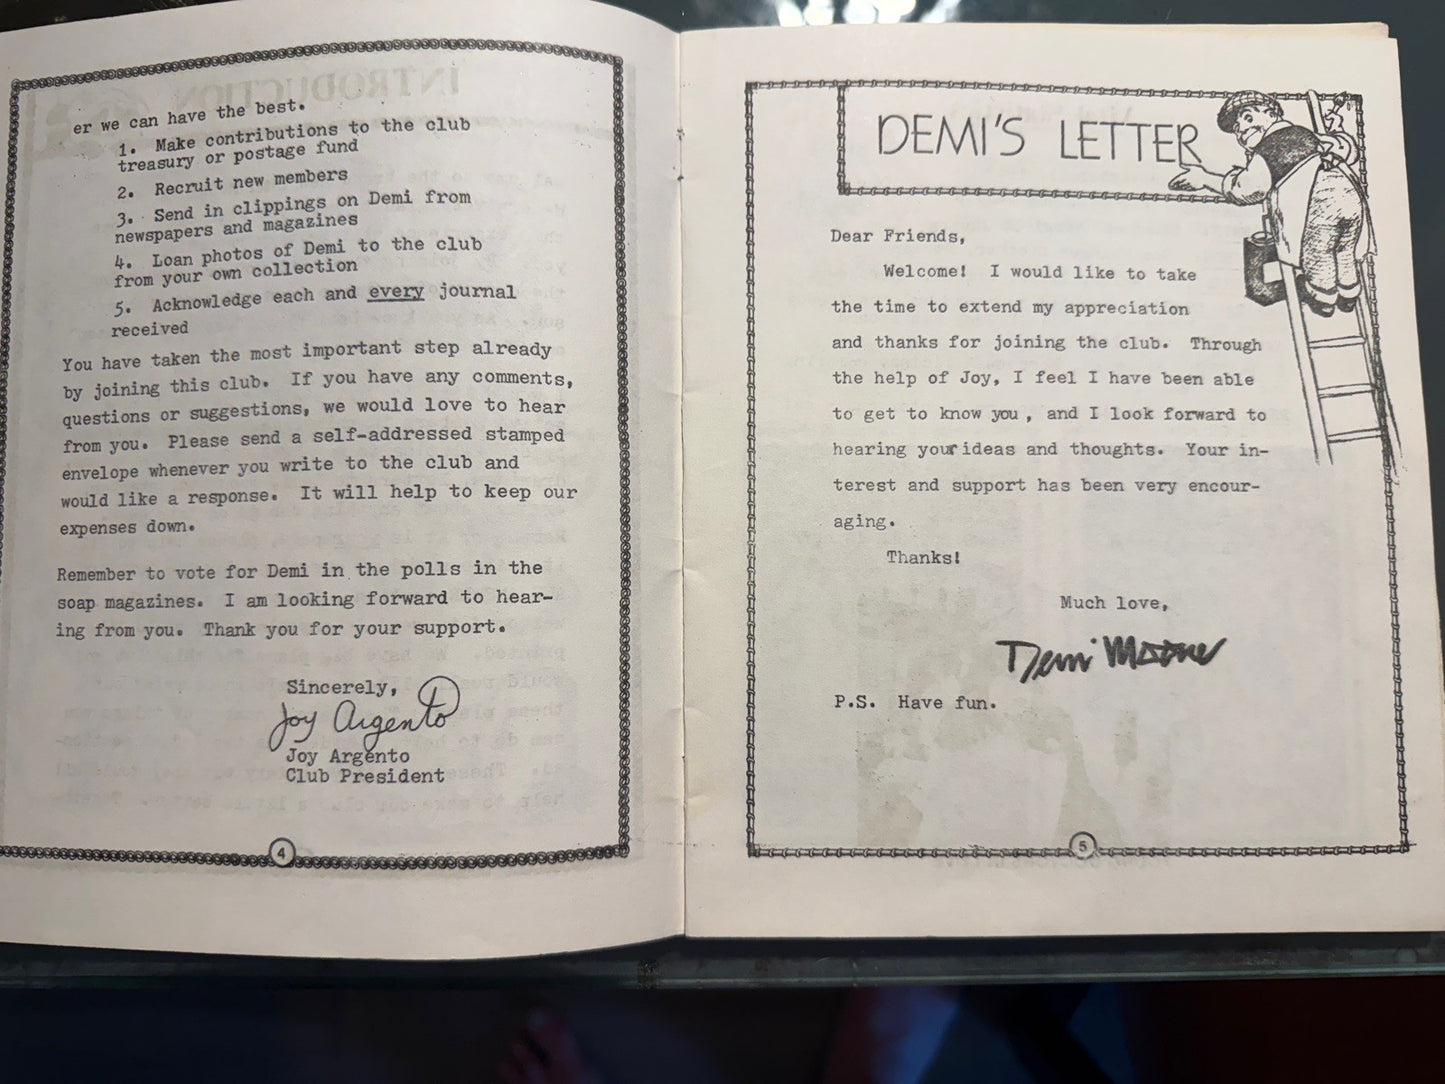 er we can have the best.
1. Make contributions to the club
treasury or postage fund
2. Recruit new members
3. Send in clippings on Demi from
newspapers and magazines
4. Loan photos of Demi to the club
from your own collection
5. Acknowledge each and every journal
received
You have taken the most important step already
by joining this club. If you have any comments,
questions or suggestions, we would love to hear
from you. Please send a self-addressed stamped
envelope whenever you write to the club and
would like a response. It will help to keep our
expenses down.
Remember to vote for Demi in the polls in the
soap magazines. I am looking forward to hear-
ing from you. Thank you for your support.
Sincerely,
Joy Argento
Joy Argento
Club President
4
DEMI'S LETTER
Dear Friends,
Welcome! I would like to take
the time to extend my appreciation
and thanks for joining the club. Through
the help of Joy, I feel I have been able
to get to know you, and I look forward to
hearing your ideas and thoughts. Your in-
terest and support has been very encour-
aging.
Thanks!
Much love,
Demi Moore
P.S. Have fun.
5